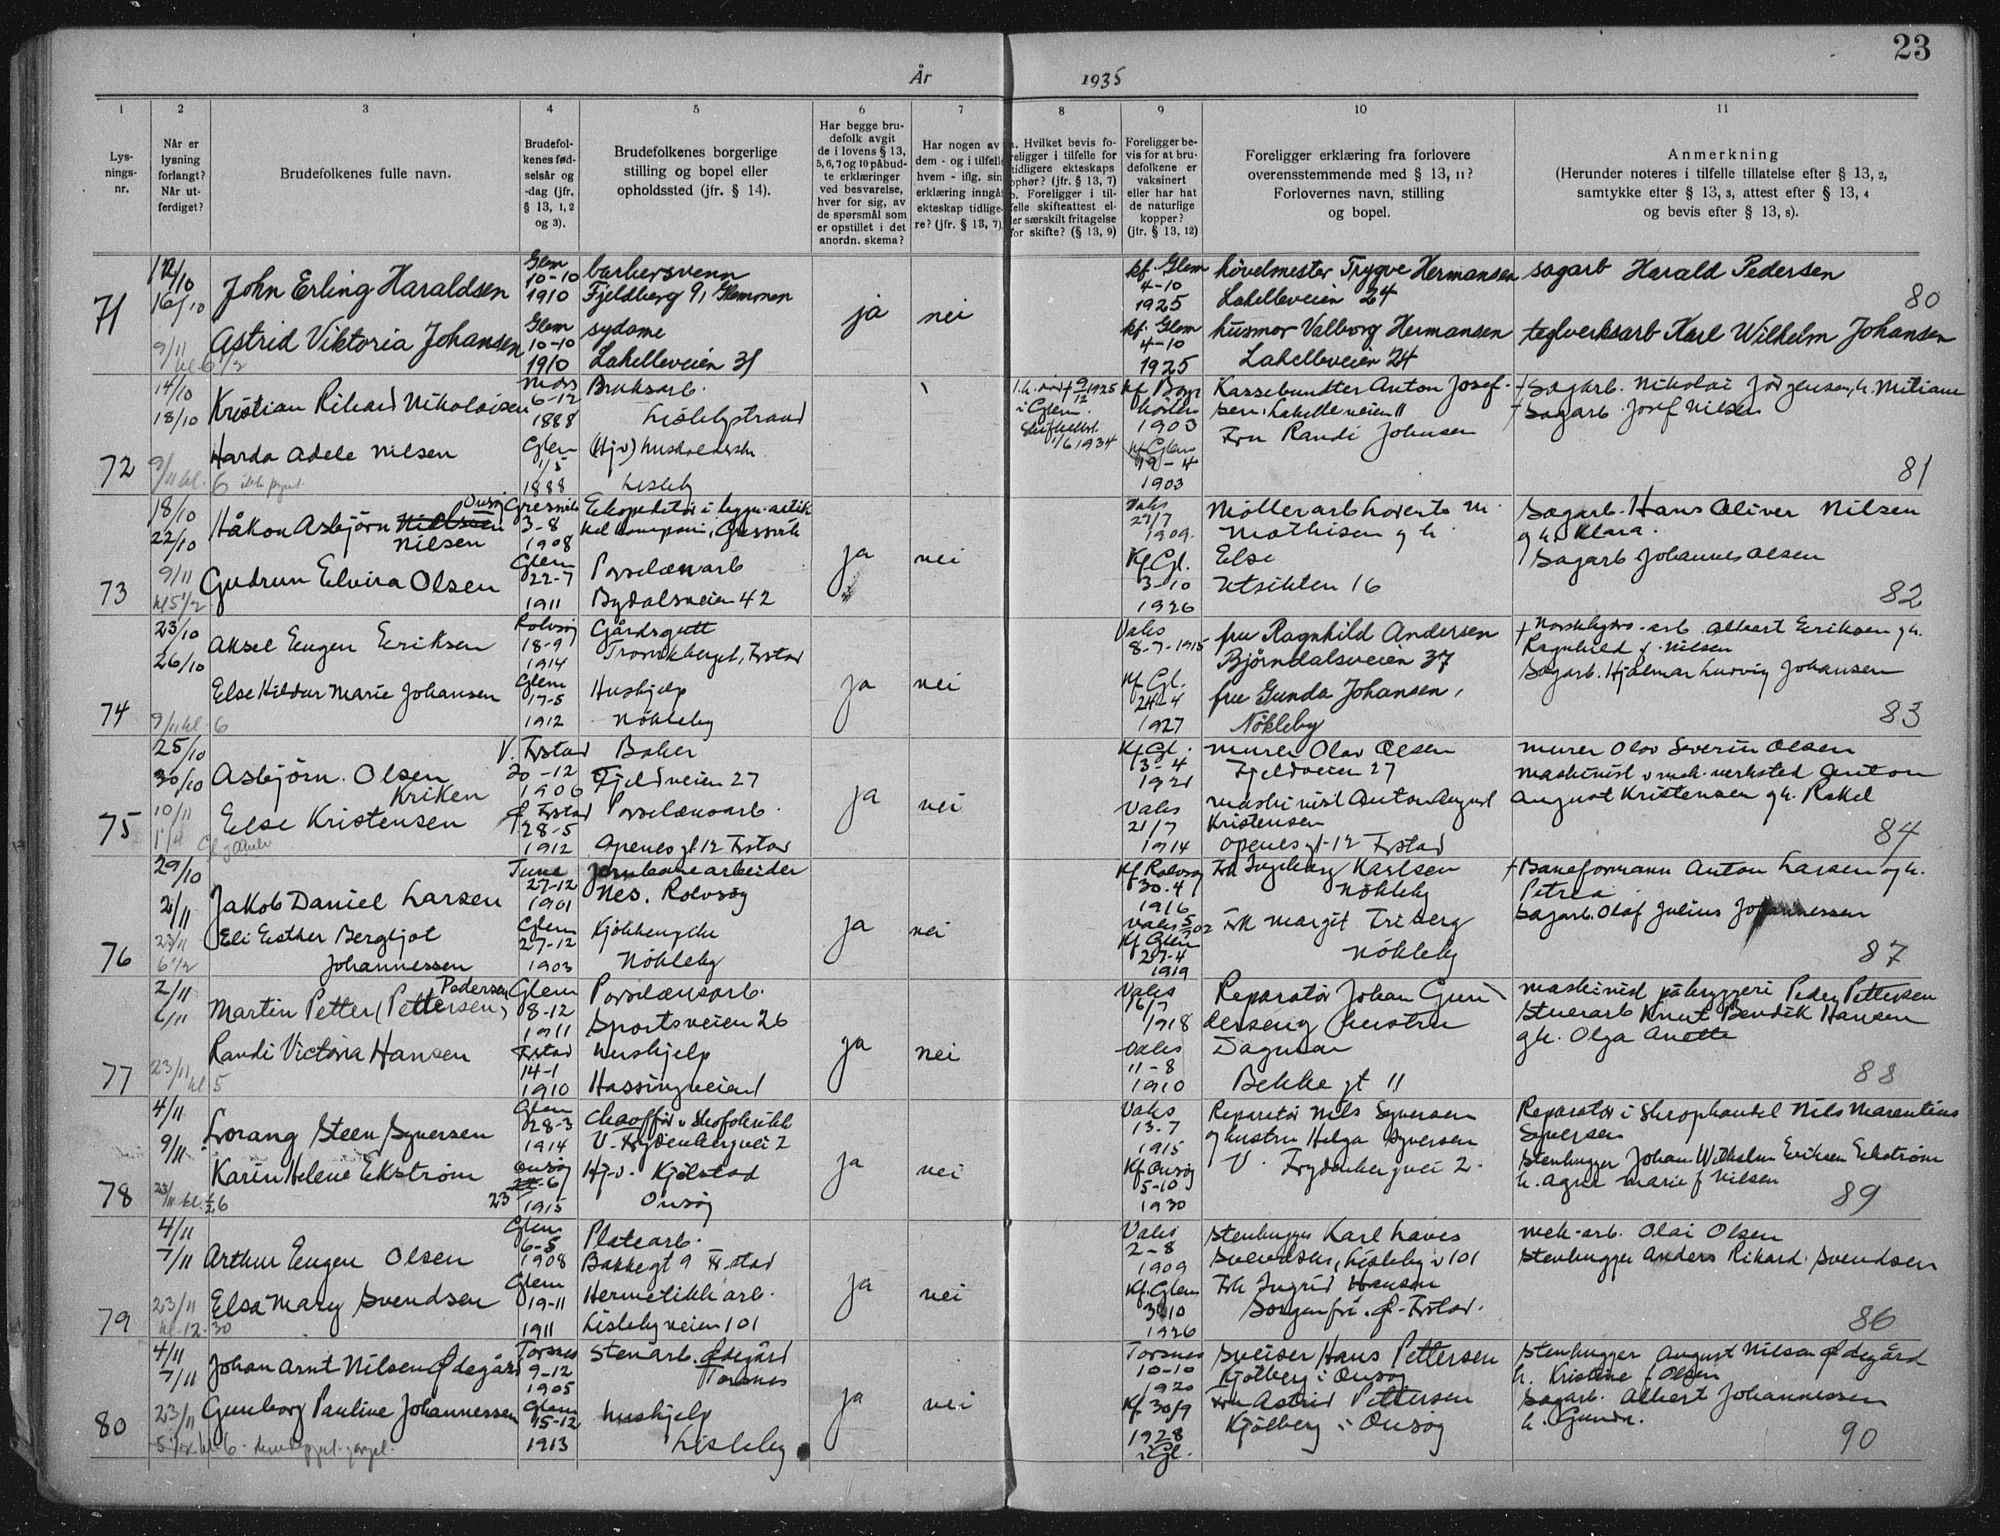 23
År 1935
1
2
3
4
5
6
7
8
9
10
11
Lys-
nings-
nr.
Når er
lysning
forlangt?
Når ut-
ferdiget?
Brudefolkenes fulle navn.
Brudefol-
kenes fød-
selsår og
-dag (jfr.
§ 13, 1, 2
og 3).
Brudefolkenes borgerlige
stilling og bopel eller
opholdssted (jfr. § 14).
Har begge bru-
defolk avgit
de i lovens § 13,
5, 6, 7 og 10 påbud-
te erklæringer
ved besvarelse,
hver for sig, av
de spørsmål som
er opstillet i det
anordn. skema?
Har nogen av
dem - og i tilfelle
hvem - iflg. sin
erklæring inngått
ekteskap tidlige-
re? (jfr. § 13, 7)
a. Hvilket bevis fo-
religger i tilfelle for
tidligere ekteskaps
ophør? (jfr. § 13, 7)
b. Foreligger i til-
felle skifteattest el-
ler særskilt fritagelse
for skifte? (§ 13, 9)
Foreligger be-
vis for at bru-
defolkene er
vaksinert
eller har hat
de naturlige
kopper?
(jfr. § 13, 12)
Foreligger erklæring fra forlovere
overensstemmende med § 13, 11?
Forlovernes navn, stilling
og bopel.
Anmerkning
(Herunder noteres i tilfelle tillatelse efter § 13, 2,
samtykke efter § 13, 3, attest efter § 13, 4
og bevis efter § 13, 8).
71
12/10
16/10
9/11
kl 6 1/2
John Erling Haraldsen
Astrid Viktoria Johansen
Glem
10-10
1910
Glem
10-10
1910
barbersvenn
Fjeldberg 9, Glemmen
sydame
Lahelleveien 31
ja
nei
kf. Glem
4-10
1925
kf. Glem
4-10
1925
høvelmester Trygve Hermansen
Lahelleveien 24
husmor Valborg Hermansen
Lahelleveien 24
sagarb Harald Pedersen
80
teglverksarb Karl Wilhelm Johansen
72
14/10
18/10
9/11 kl.
6 ikke pynt
Kristian Rikard Nikolaisen
Harda Adele Nilsen
Moss
6-12
1888
Glem
1/5
1888
Bruksarb.
Lislebystrand
(Hj.v)
Lisleby
i Glem.
1/6 1934
1903
Kf Glem
19-4
1903
Kassebundter Anton Josef-
sen, Lahelleveien 11
Fru Randi Johnsen
+ Sagarb. Nikolai Jørgensen, h. Mitiane
+ Sagarb. Josef Nilsen
81
73
18/10
22/10
9/11
kl 5 1/2
Håkon Asbjørn Nielsen
Nilsen
Gudrun Elvira Olsen
Onsøy
Gressvik
3-8
1908
Glem
22-7
1911
Ekspeditør i
kel kompani, Gressvik
Porselænarb
Bydalsveien 42
ja
nei
Vaks
27/7
1909.
Kf Gl.
3-10
1926
Møllerarb Lorents M.
Mathisen g h.
Else
Utsikten 16
Sagarb. Hans Oliver Nilsen
g h. Klara.
Sagarb Johannes Olsen
82
74
23/10
26/10
9/11 kl. 6
Aksel Eugen Eriksen
Else Hildur Marie Johansen
Rolvsøy
18-9
1914
Glem
17-5
1912
Gårdsgutt
Trosvikberget, Frstad
Hushjelp
Nökleby
ja
nei
Vaks
8-7-1915
Kf Gl.
24-4
1927
fru Ragnhild Andersen
Bjørndalsveien 37
fru Gunda Johansen,
Nökleby
+ Norskhydro-arb. Albert Eriksen g h.
Ragnhild f. Nilsen
Sagarb. Hjalmar Ludvig Johansen
83
75
25/10
30/10
10/11
Asbjørn. Olsen
Kriken
Else Kristensen
V. Frstad
20-12
1906
Ø. Frstad
28-5
1912
Baker
Fjeldveien 27
Porselænsarb.
Apenes gt 12 Frstad
ja
nei
Kf Gl.
13-4
1921
Vaks
21/7
1914
Murer Olav Olsen
Fjeldveien 27
maskinist Anton August
Kristensen
Apenes gt-12 Frstad
murer Olav Severin Olsen
maskinist v mek. verksted Anton
August Kristensen g h. Rakel
84
76
29/10
2/11
23/11
6 1/2
Jakob Daniel Larsen
Eli Esther Bergljot
Johannessen
Tune
27-12
1901
Glem
27-12
1903
Jernbanearbeider
Nes. Rolvsøy
Kjökkenpike
Nökleby
ja
nei
Kf Rolvsøy
30.4
1916
Vaks 5/7 02
Kf Glem
27-4
1919
Frk Ingeborg Karlsen
Nökleby
Frk Margit Friberg
Nökleby
+ Baneformann Anton Larsen og h.
Petrea
Sagarb. Olaf Julius Johannessen
87
77
2/11
6/11
23/11 kl 5
Martin Petter (Pettersen)
Pedersen
Randi Victoria Hansen
Glem
8-12
1911
Frstad
14-1
1910
Porselænsarb.
Sportsveien 26
hushjelp
Hassingveien 1
ja
nei
Vaks
16/7
1918
Vaks
11-8
1910
Reparatör Johan Gun-
dersen g hustru
Dagmar
Bekke gt 11
maskinist på bryggeri Peder Pettersen
Stuerarb Knut Bendik Hansen
g h. Olga Anette
88
78
4/11
9/11
23/11 kl. 6
Lorang Steen Syversen
Karin Helene Ekstrøm
Glem
28-3
1914
Onsøy
22-6
23
1915
Chaufför v Skofabrikk
V. Frydenbergvei 2
Hj.v. Kjølstad
Onsøy
ja
nei
Vaks
13.7
1915
Kf Onsøy
5-10
1930
Reparatør Nils Syversen
g hustru Helga Syversen
V. Frydenbergvei 2.
Reparatør i Skraphandel Nils Marentius
Syversen
Stenhugger Johan Wilhelm Eriksen Ekstrøm
h. Agne Marie f Nilsen
89
79
4/11
7/11
23/11
kl. 12.30
Arthur Eugen Olsen
Elsa Mary Svendsen
Glem
6-5
1908
Glem
19-11
1911
Platearb.
Bakkegt 9 Frstad
Hermetikk arb.
Lislebyveien 101
ja
nei
Vaks
2-8
1909
Kf. Glem
3-10
1926
Stenhugger Karl Laves
Svendsen, Lisleby v 101
Frk Ingrid Hansen
Sorgenfri. Ø-Frstad.
mek-arb. Olai Olsen
Stenhugger Anders Rikard. Svendsen
86
80
4/11
7/11
23/11
Johan Arnt Nilsen Ødegård
Gunborg Pauline Johannessen
Torsnes
9-12
1905
Glem
15-12
1913
Stenarb. Ødegård
Torsnes
hushjelp
Lisleby
ja
nei
Torsnes
10-10
1920
Kf 30/9
1928
i Gl.
Sveiser Hans Pettersen
Kjølberg i Onsøy
Fru Astrid Pettersen
Kjølberg i Onsøy
Stenhugger August Nilsen Ødegård
h. Kristine f. Olsen
Sagarb. Albert Johannessen
h. Gunda.
90